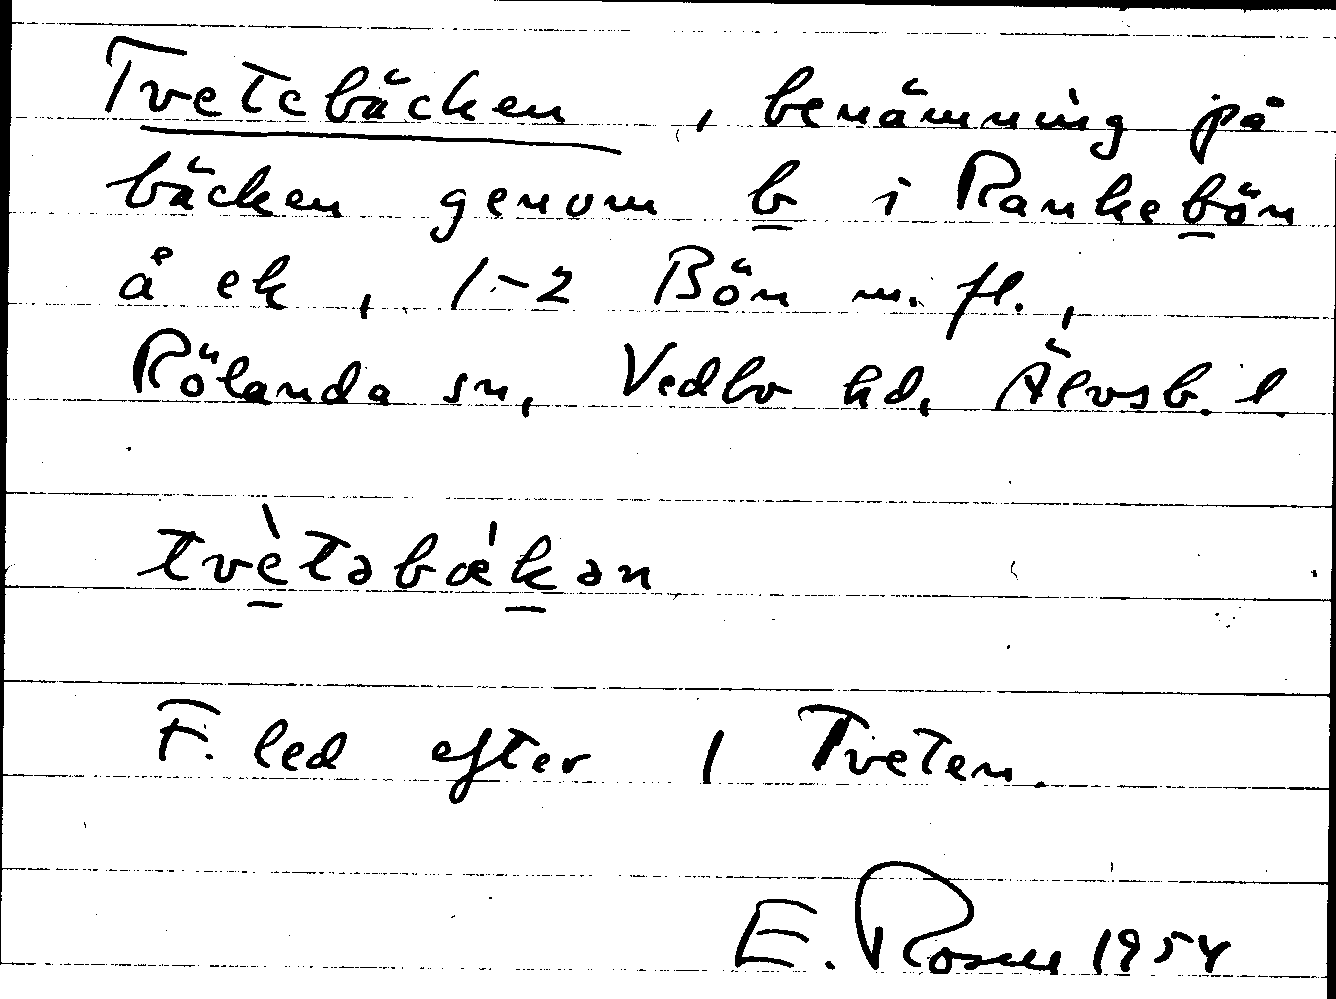 Tvetebäcken, benämning på
bäcken genom b i Rankebön
å ek, 1-2 Bön m. fl.,
Rölanda sn, Vedbo hd, Älvsb. l.
tvètəbækən
F. led efter 1 Tveten.
E. Rosell 1954